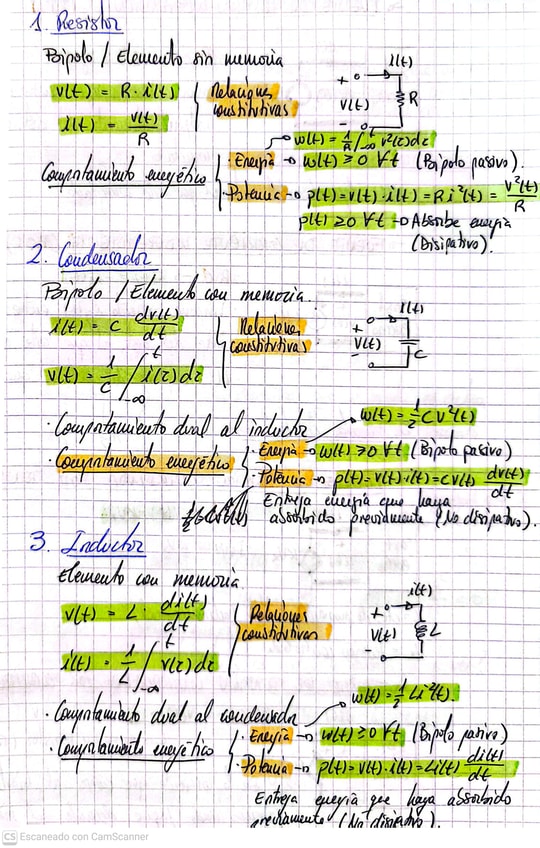 1. Resistor
Bipolo / Elemento sin memoria
v(t) = R · i(t)
i(t) = v(t)/R
Relaciones constitutivas
i(t)
+
v(t)
R
-
w(t) = 1/R ∫_{-∞}^{t} v²(τ)dτ
Comportamiento energético
· Energía → w(t) ≥ 0 ∀t (Bipolo pasivo).
· Potencia → p(t) = v(t) · i(t) = R i²(t) = v²(t)/R
p(t) ≥ 0 ∀t → Absorbe energía
(Disipativo).
2. Condensador
Bipolo / Elemento con memoria.
i(t) = C dv(t)/dt
v(t) = 1/C ∫_{-∞}^{t} i(τ)dτ
Relaciones constitutivas
i(t)
+
v(t)
-
C
· Comportamiento dual al inductor
w(t) = 1/2 C v²(t)
· Comportamiento energético
· Energía → w(t) ≥ 0 ∀t (Bipolo pasivo)
· Potencia → p(t) = v(t) · i(t) = C v(t) dv(t)/dt
Entrega energía que haya
absorbido previamente (No disipativo).
3. Inductor
Elemento con memoria
v(t) = L · di(t)/dt
i(t) = 1/L ∫_{-∞}^{t} v(τ)dτ
Relaciones constitutivas
i(t)
+
v(t)
L
-
w(t) = 1/2 L i²(t).
· Comportamiento dual al condensador
· Comportamiento energético
· Energía → w(t) ≥ 0 ∀t (Bipolo pasivo)
· Potencia → p(t) = v(t) · i(t) = L i(t) di(t)/dt
Entrega energía que haya absorbido
previamente (No disipativo).
CS Escaneado con CamScanner